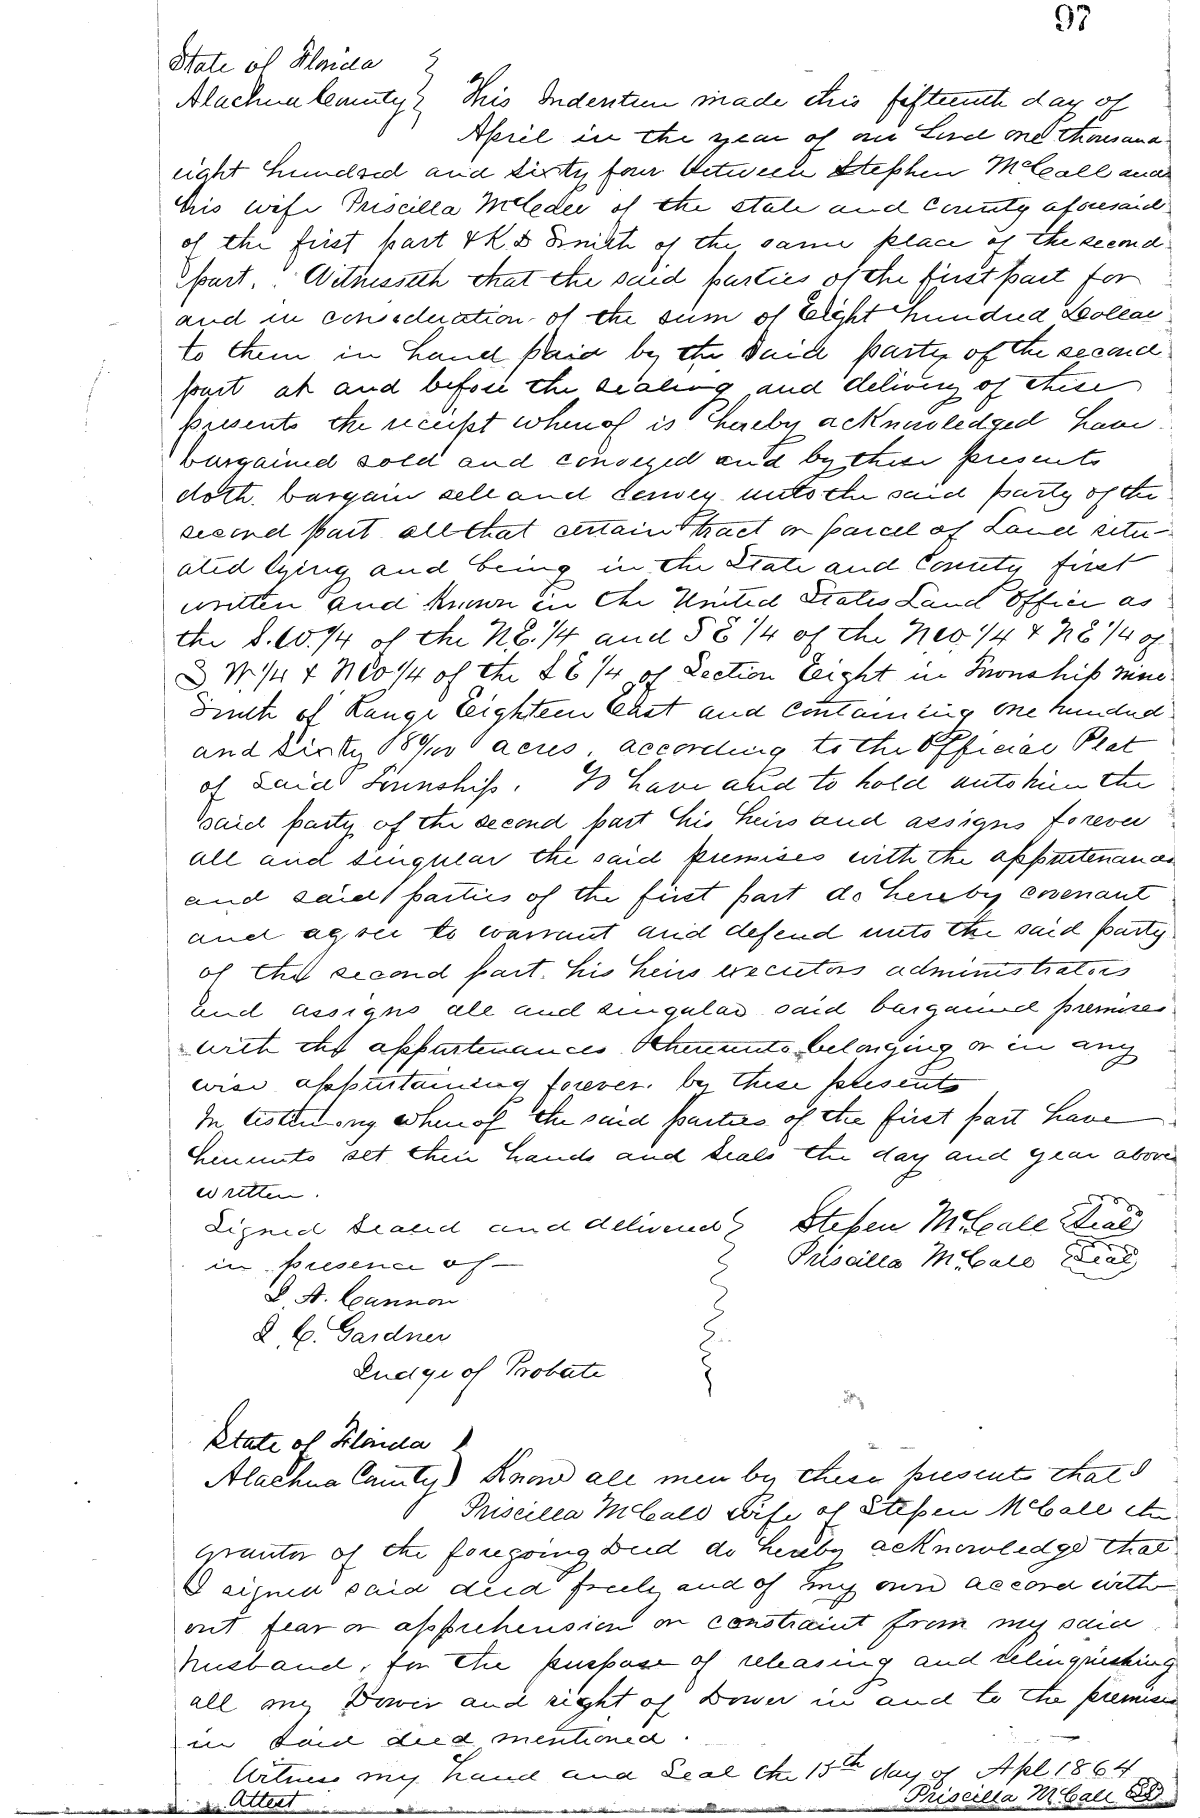 97
State of Florida
Alachua County } This Indenture made this fifteenth day of
April in the year of our Lord one thousand
eight hundred and sixty four between Stephen McCall and
his wife Priscilla McCall of the state and County aforesaid
of the first part & K. D Smith of the same place of the second
part. Witnesseth that the said parties of the first part for
and in consideration of the sum of Eight hundred Dollars
to them in hand paid by the said party of the second
part at and before the sealing and delivery of these
presents the receipt whereof is hereby acknowledged have
bargained sold and conveyed and by these presents
doth bargain sell and convey unto the said party of the
second part all that certain tract or parcel of Land situ-
ated lying and being in the State and County first
written and known in the United States Land Office as
the S.W. 1/4 of the N.E. 1/4 and S E 1/4 of the N W 1/4 & N E 1/4 of
S W. 1/4 & N W 1/4 of the S E 1/4 of Section Eight in Township nine
South of Range Eighteen East and containing one hundred
and sixty acres, according to the Official Plat
of said Township. To have and to hold unto him the
said party of the second part his heirs and assigns forever
all and singular the said premises with the appurtenances
and said parties of the first part do hereby covenant
and agree to warrant and defend unto the said party
of the second part. his heirs executors administrators
and assigns all and singular said bargained premises
with the appurtenances thereunto belonging or in any
wise appurtaining forever. by these presents
In testimony whereof the said parties of the first part have
hereunto set their hands and seals the day and year above
written.
Signed sealed and delivered } Stepen McCall Seal
in presence of Priscilla McCall Seal
S. A. Cannon
S. C. Gardner
Judge of Probate
State of Florida
Alachua County } Know all men by these presents that I
Priscilla McCall Wife of Stepen McCall the
grantor of the foregoing Deed do hereby acknowledge that
I signed said deed freely and of my own accord with
out fear or apprehension or constraint from my said
husband, for the purpose of releasing and relinquishing
all my Dower and right of Dower in and to the premises
in said deed mentioned.
Witness my hand and Seal the 15th day of Apl 1864
Attest Priscilla McCall